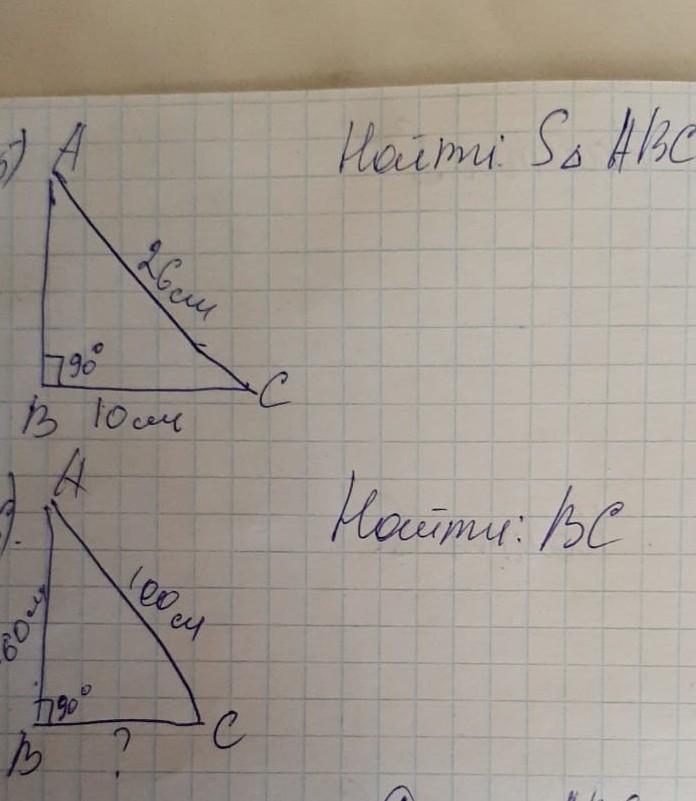 5) A
Найти: S△ ABC
26 см
90°
B 10 см C
A
Найти: BC
100 см
90°
B ? C